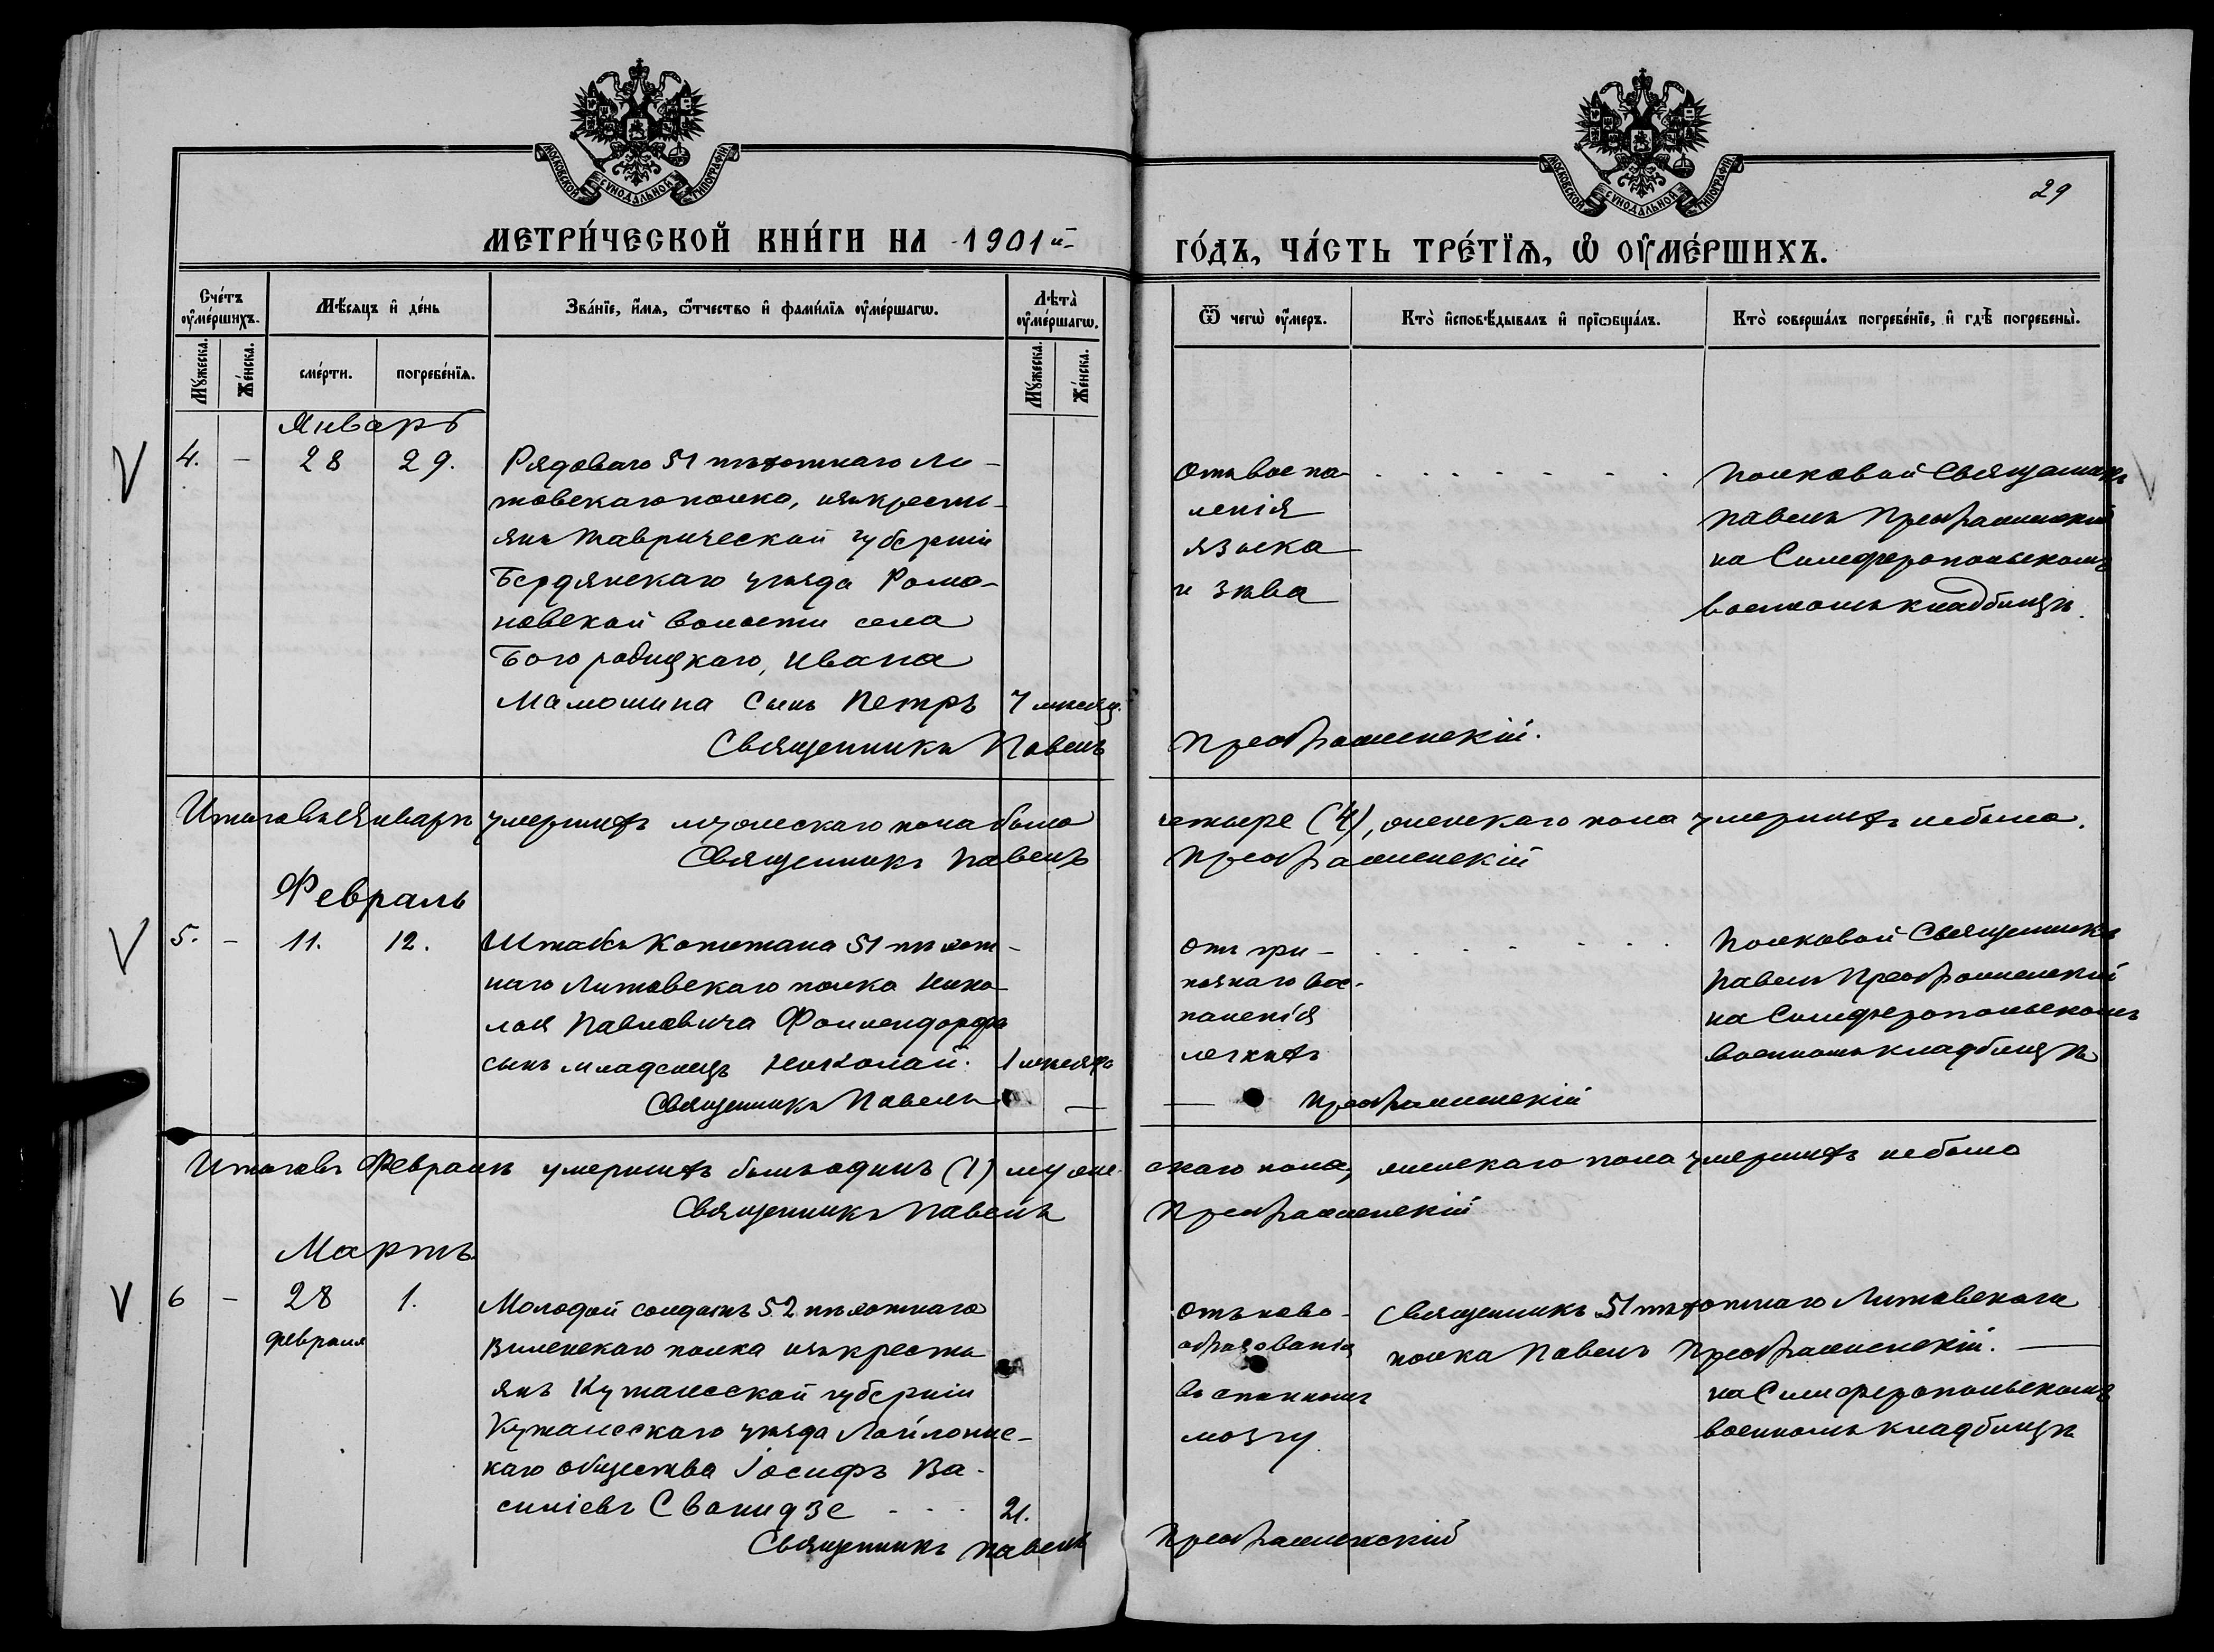 МОСКОВСКОЙ СѴНОДАЛЬНОЙ ТИПОГРАФІИ
МОСКОВСКОЙ СѴНОДАЛЬНОЙ ТИПОГРАФІИ
29
МЕТРИ́ЧЕСКОЙ КНИ́ГИ НА 1901й
ГО́ДЪ, ЧА́СТЬ ТРЕ́ТЇѦ, Ѡ҆ ОУ҆МЕ́РШИХЪ.
Сче́тъ оу҆ме́ршихъ.
Мѣ́сѧцъ и҆ де́нь
Зва́нїе, и҆́мѧ, ѻ҆́тчество и҆ фами́лїѧ оу҆ме́ршагѡ.
Лѣта̀ оу҆ме́ршагѡ.
Ѿ чегѡ̀ оу҆́меръ.
Кто̀ и҆сповѣ́дывалъ и҆ прїѡбща́лъ.
Кто̀ соверша́лъ погребе́нїе, и҆ гдѣ̀ погребены̀.
Мꙋ́жеска.
Же́нска.
сме́рти.
погребе́нїѧ.
Мꙋ́жеска.
Же́нска.
Январь
4. - 28 29.
Рядоваго 51 пѣхотнаго Ли-
товскаго полка, изъ крестъ-
янъ Таврической губерніи
Бердянскаго уѣзда Рома-
новской волости села
Богородицкаго, Ивана
Мамошина сынъ Петръ 7 мѣсяц.
Отъ воспа-
ленія
языка
и зѣва
Полковой Священникъ
Павелъ Преображенскій
на Симферопольскомъ
военномъ кладбищѣ.
Священникъ Павелъ Преображенскій.
Итого въ Январѣ умершихъ мужескаго пола было четыре (4), женскаго пола умершихъ небыло.
Священникъ Павелъ Преображенскій
Февраль
5. - 11. 12.
Штабсъ Капитана 51 пѣхот-
наго Литовскаго полка Нико-
лая Павловича Фоллендорфа
сынъ младенецъ Николай. 1 мѣсяцъ
Отъ гри-
позного вос-
паленія
легкихъ
Полковой Священникъ
Павелъ Преображенскій
на Симферопольскомъ
военномъ кладбищѣ
Священникъ Павелъ Преображенскій
Итого въ Февралѣ умершихъ былъ одинъ (1) мужескаго пола, женскаго пола умершихъ небыло
Священникъ Павелъ Преображенскій
Мартъ
6 - 28 1.
февраля
Молодой солдатъ 52 пѣхотнаго
Виленскаго полка изъ кресть
янъ Кутаисской губерніи
Кутаисскаго уѣзда
каго общества Іосифъ Ва-
силіевъ Сванидзе 21.
Отъ ново-
образованія
въ спинномъ
мозгу.
Священникъ 51 пѣхотнаго Литовскаго
полка Павелъ Преображенскій.
на Симферопольскомъ
военномъ кладбищѣ
Священникъ Павелъ Преображенскій